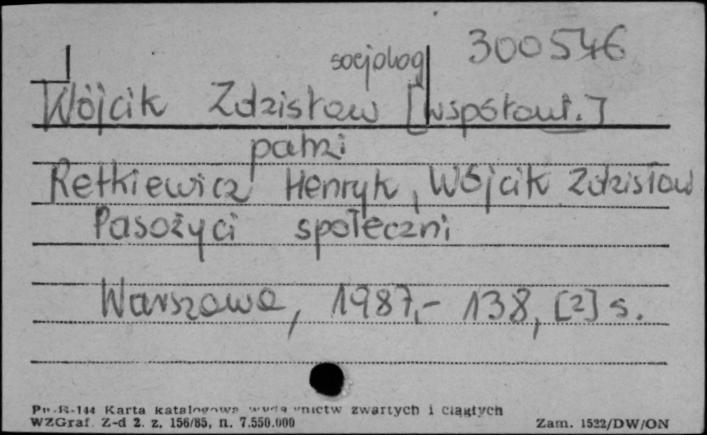 socjolog 300546
Wójcik Zdzisław [współaut.]
patrz
Retkiewicz Henryk, Wójcik Zdzisław
Pasożyci społeczni
Warszawa, 1987,- 138, [2] s.
Pu-B-144 Karta katalogowa wydawnictw zwartych i ciągłych
WZGraf. Z-d 2. z. 156/85, n. 7.550.000 Zam. 1522/DW/ON